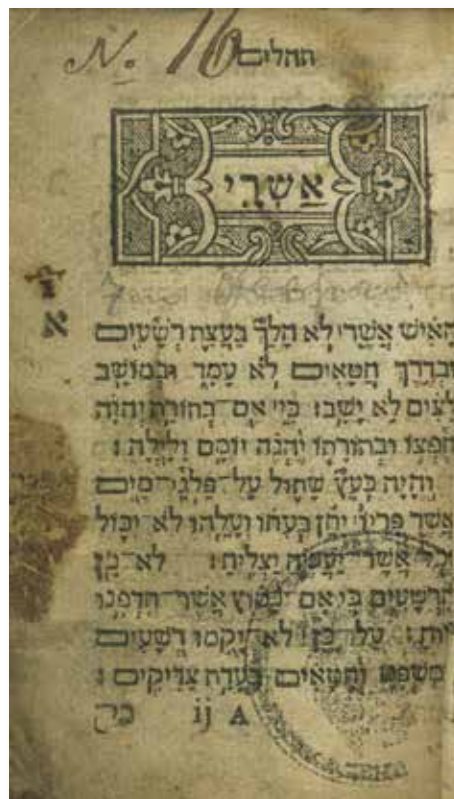 No. 16 תהלים
אַשְׁרֵי
א
הָאִישׁ אֲשֶׁר לֹא הָלַךְ בַּעֲצַת רְשָׁעִים
וּבְדֶרֶךְ חַטָּאִים לֹא עָמָד וּבְמוֹשַׁב
לֵצִים לֹא יָשָׁב׃ כִּי אִם־בְּתוֹרַת יְהוָה
חֶפְצוֹ וּבְתוֹרָתוֹ יֶהְגֶּה יוֹמָם וָלָיְלָה׃
וְהָיָה כְּעֵץ שָׁתוּל עַל־פַּלְגֵי־מָיִם
אֲשֶׁר פִּרְיוֹ יִתֵּן בְּעִתּוֹ וְעָלֵהוּ לֹא־יִבּוֹל
וְכֹל אֲשֶׁר־יַעֲשֶׂה יַצְלִיחַ׃ לֹא־כֵן
הָרְשָׁעִים כִּי־אִם־כַּמֹּץ אֲשֶׁר־תִּדְּפֶנּוּ
רוּחַ׃ עַל־כֵּן לֹא־יָקֻמוּ רְשָׁעִים
בַּמִּשְׁפָּט וְחַטָּאִים בַּעֲדַת צַדִּיקִים׃
A ij כי